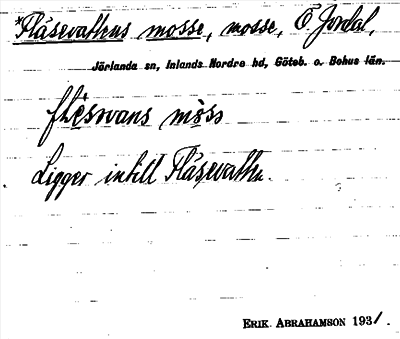 *Fläsevathus mosse, mosse, Ö Jordal,
Jörlanda sn, Inlands Nordre hd, Göteb. o. Bohus län.
flęsvans mòss
Ligger intill Fläsevattn.
ERIK ABRAHAMSON 1931.